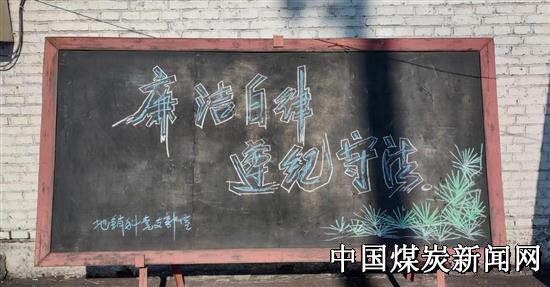 廉洁自律
遵纪守法
地销科党支部宣
中国煤炭新闻网